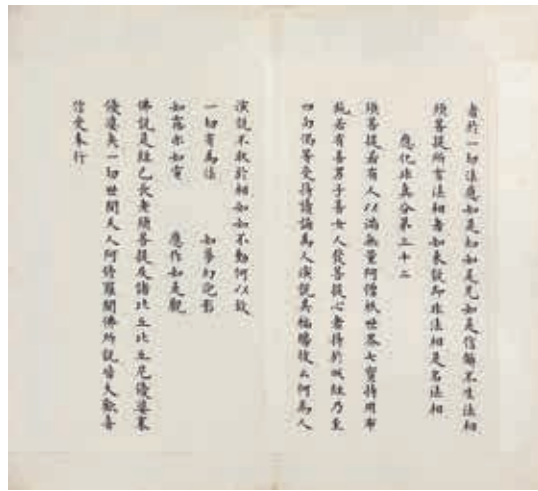 者於一切法應如是知如是見如是信解不生法相
須菩提所言法相者如來說即非法相是名法相
應化非真分第三十二
須菩提若有人以滿無量阿僧祇世界七寶持用布
施若有善男子善女人發菩提心者持於此經乃至
四句偈等受持讀誦為人演說其福勝彼云何為人
演說不取於相如如不動何以故
一切有為法 如夢幻泡影
如露亦如電 應作如是觀
佛說是經已長老須菩提及諸比丘比丘尼優婆塞
優婆夷一切世間天人阿修羅聞佛所說皆大歡喜
信受奉行